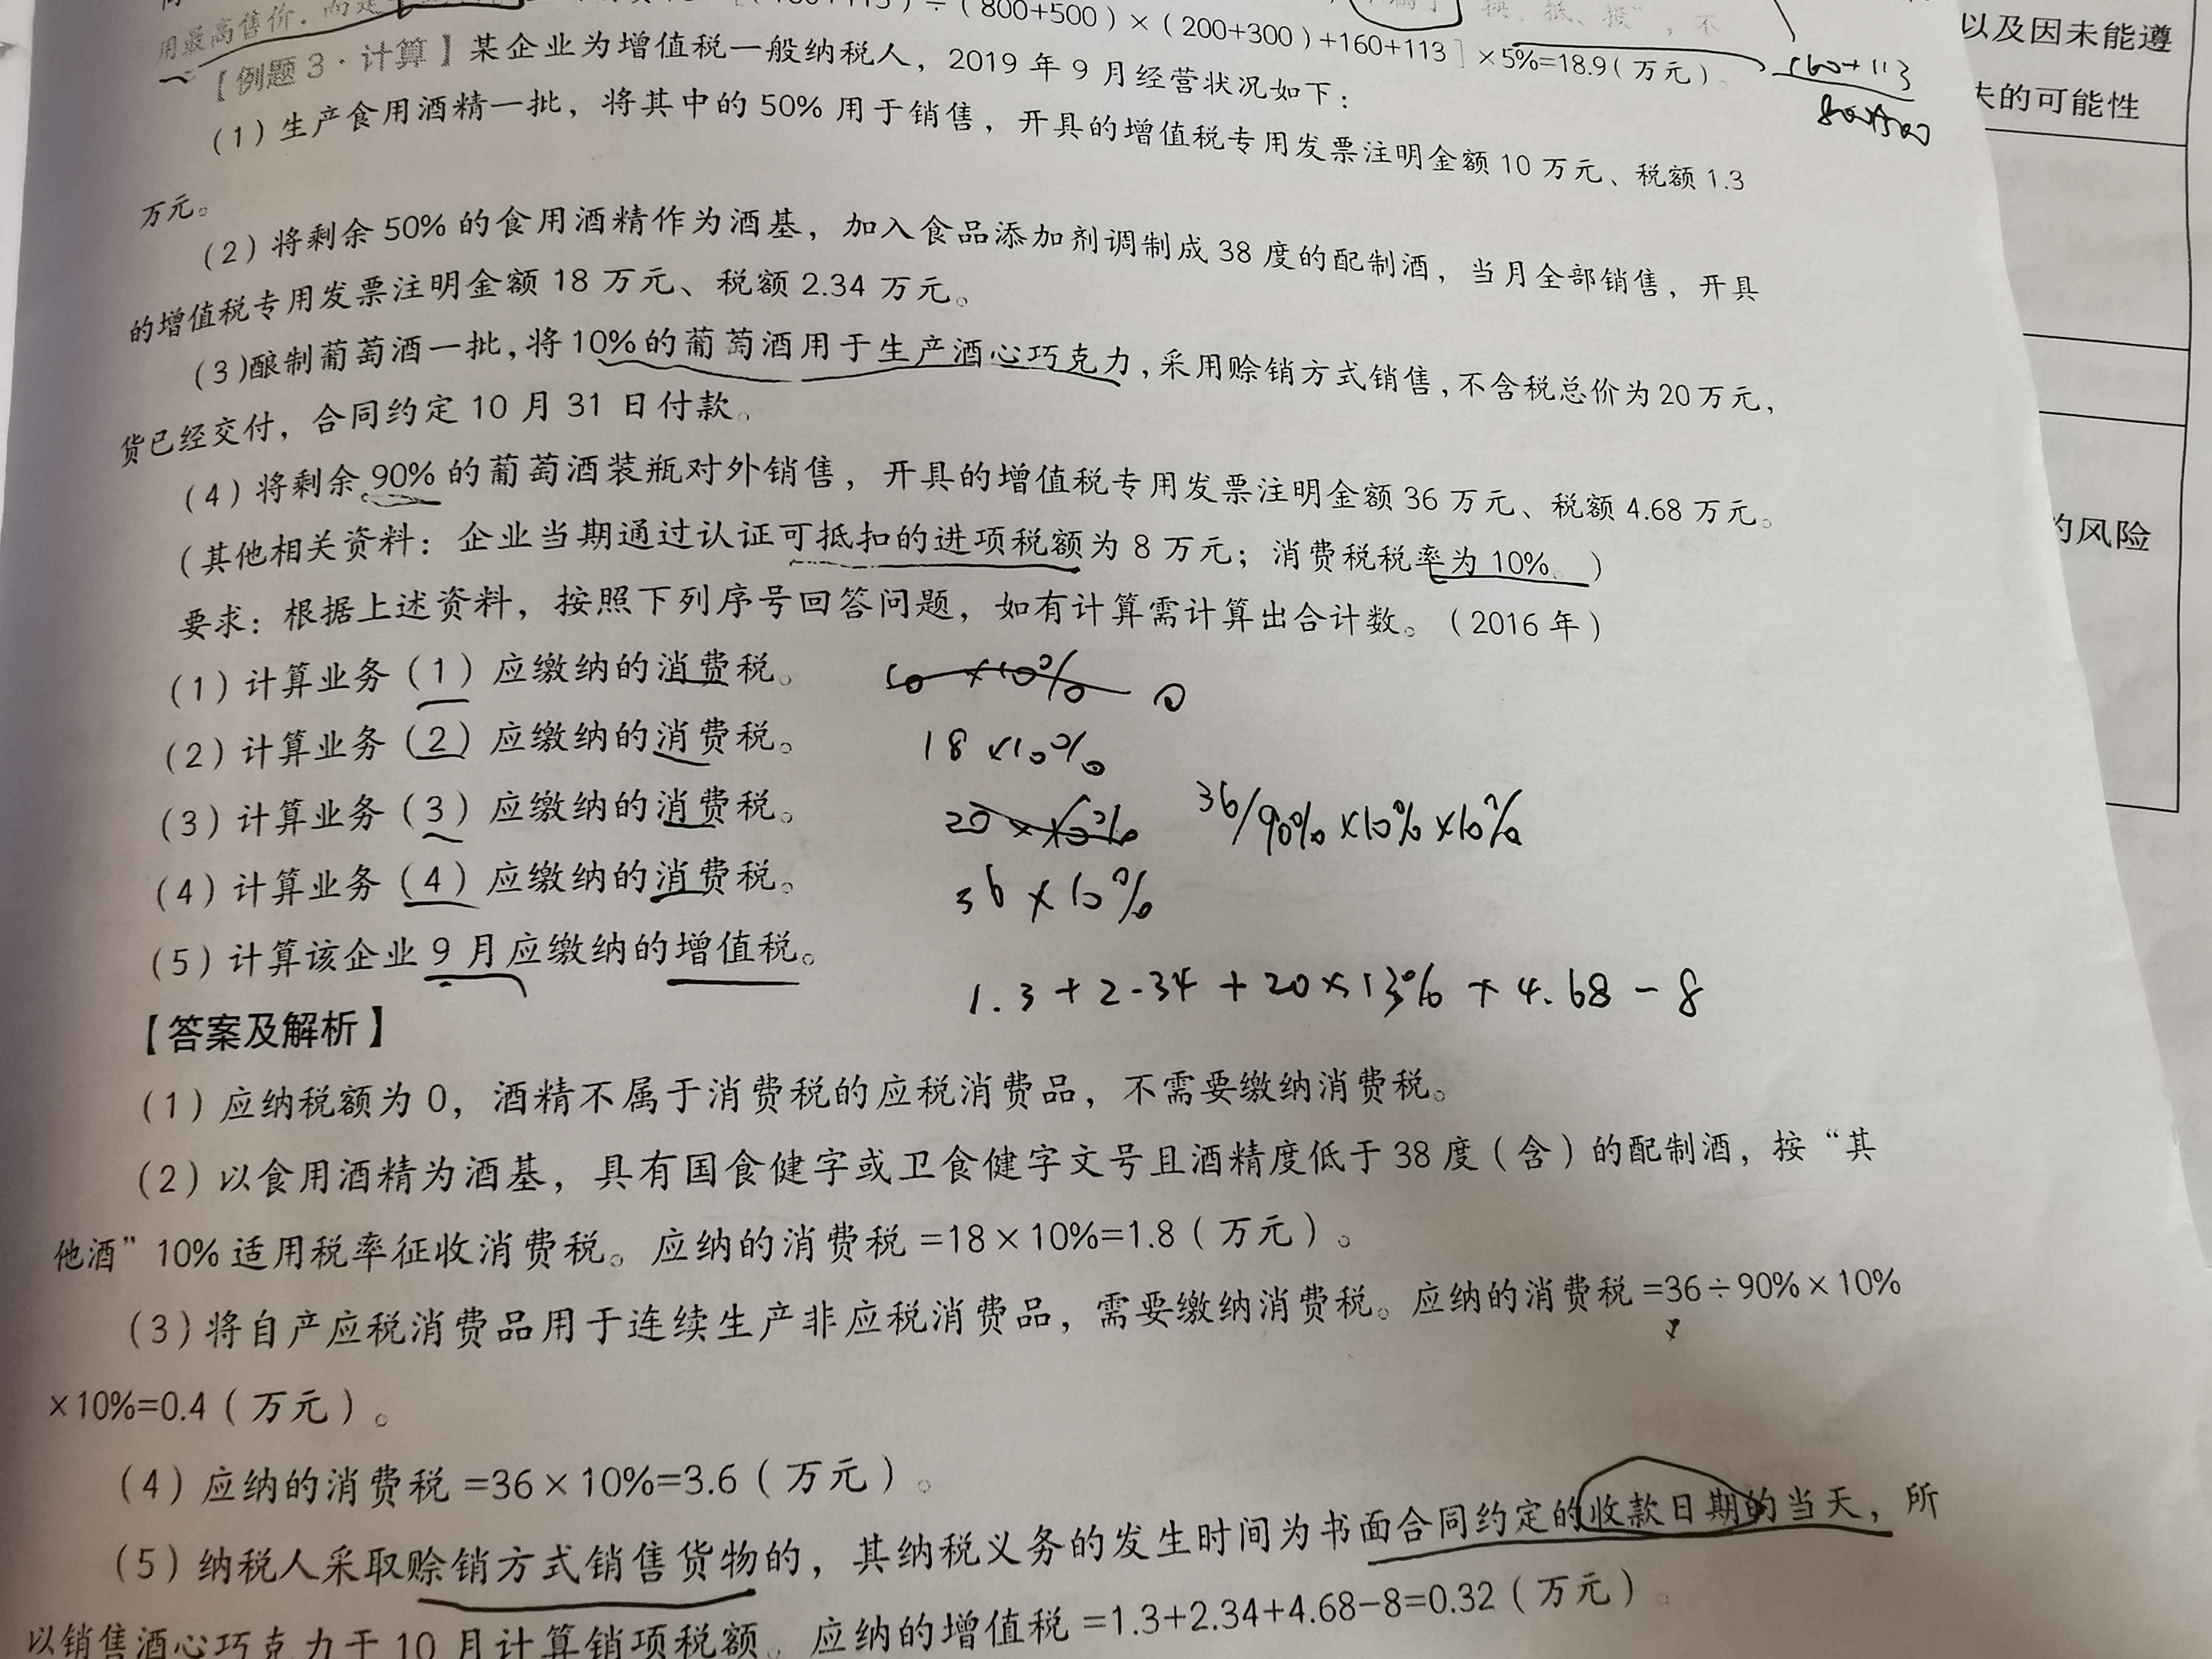 用最高售价，而是
(800+500)×(200+300)+160+113]×5%=18.9(万元)。
160+113
800+500
以及因未能遵
失的可能性
的风险
【例题3·计算】某企业为增值税一般纳税人，2019年9月经营状况如下：
(1)生产食用酒精一批，将其中的50%用于销售，开具的增值税专用发票注明金额10万元、税额1.3
万元。
(2)将剩余50%的食用酒精作为酒基，加入食品添加剂调制成38度的配制酒，当月全部销售，开具
的增值税专用发票注明金额18万元、税额2.34万元。
(3)酿制葡萄酒一批,将10%的葡萄酒用于生产酒心巧克力,采用赊销方式销售,不含税总价为20万元,
货已经交付，合同约定10月31日付款。
(4)将剩余90%的葡萄酒装瓶对外销售，开具的增值税专用发票注明金额36万元、税额4.68万元。
(其他相关资料：企业当期通过认证可抵扣的进项税额为8万元；消费税税率为10%。)
要求：根据上述资料，按照下列序号回答问题，如有计算需计算出合计数。(2016年)
(1)计算业务(1)应缴纳的消费税。 10×10% 0
(2)计算业务(2)应缴纳的消费税。 18×10%
(3)计算业务(3)应缴纳的消费税。 20×10% 36/90%×10%×10%
(4)计算业务(4)应缴纳的消费税。 36×10%
(5)计算该企业9月应缴纳的增值税。
1.3+2.34+20×13%+4.68-8
【答案及解析】
(1)应纳税额为0，酒精不属于消费税的应税消费品，不需要缴纳消费税。
(2)以食用酒精为酒基，具有国食健字或卫食健字文号且酒精度低于38度(含)的配制酒，按“其
他酒”10%适用税率征收消费税。应纳的消费税=18×10%=1.8(万元)。
(3)将自产应税消费品用于连续生产非应税消费品，需要缴纳消费税。应纳的消费税=36÷90%×10%
×10%=0.4(万元)。
(4)应纳的消费税=36×10%=3.6(万元)。
(5)纳税人采取赊销方式销售货物的，其纳税义务的发生时间为书面合同约定的收款日期的当天，所
以销售酒心巧克力于10月计算销项税额。应纳的增值税=1.3+2.34+4.68-8=0.32(万元)。